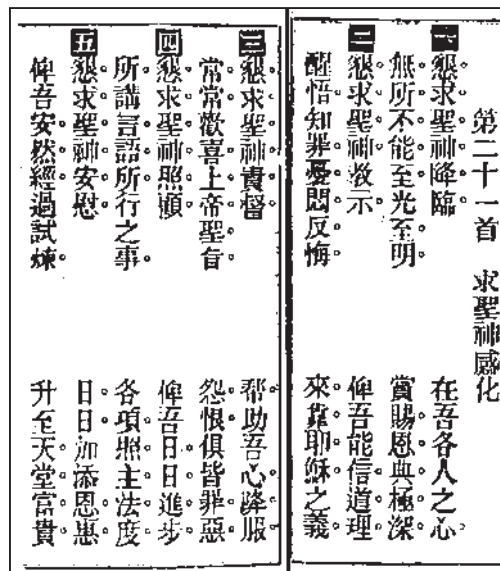 第二十一首 求聖神感化
一 懇求聖神降臨 在吾各人之心
無所不能至光至明 賞賜恩典極深
二 懇求聖神教示 俾吾能信道理
醒悟知罪憂悶反悔 來靠耶穌之義
三 懇求聖神責督 帮助吾心降服
常常歡喜上帝聖旨 怨恨俱皆罪惡
四 懇求聖神照顧 俾吾日日進步
所講言語所行之事 各項照主法度
五 懇求聖神安慰 日日加添恩惠
俾吾安然經過試煉 升至天堂富貴